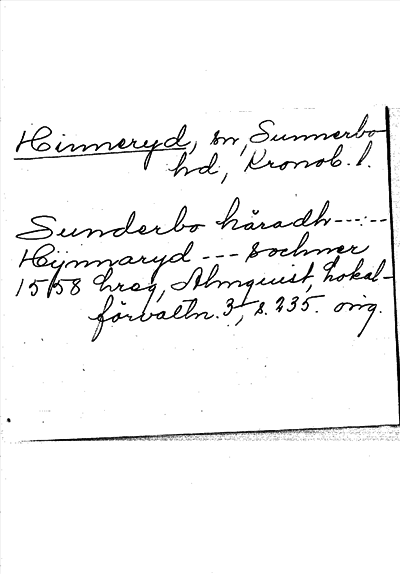 Hinneryd, sn, Sunnerbo
hd, Kronob. l.
Sunderbo häradh -----
Hynnaryd --- sochner
1558 hreg, Almquist, Lokal-
förvaltn. 3, s. 235. orig.